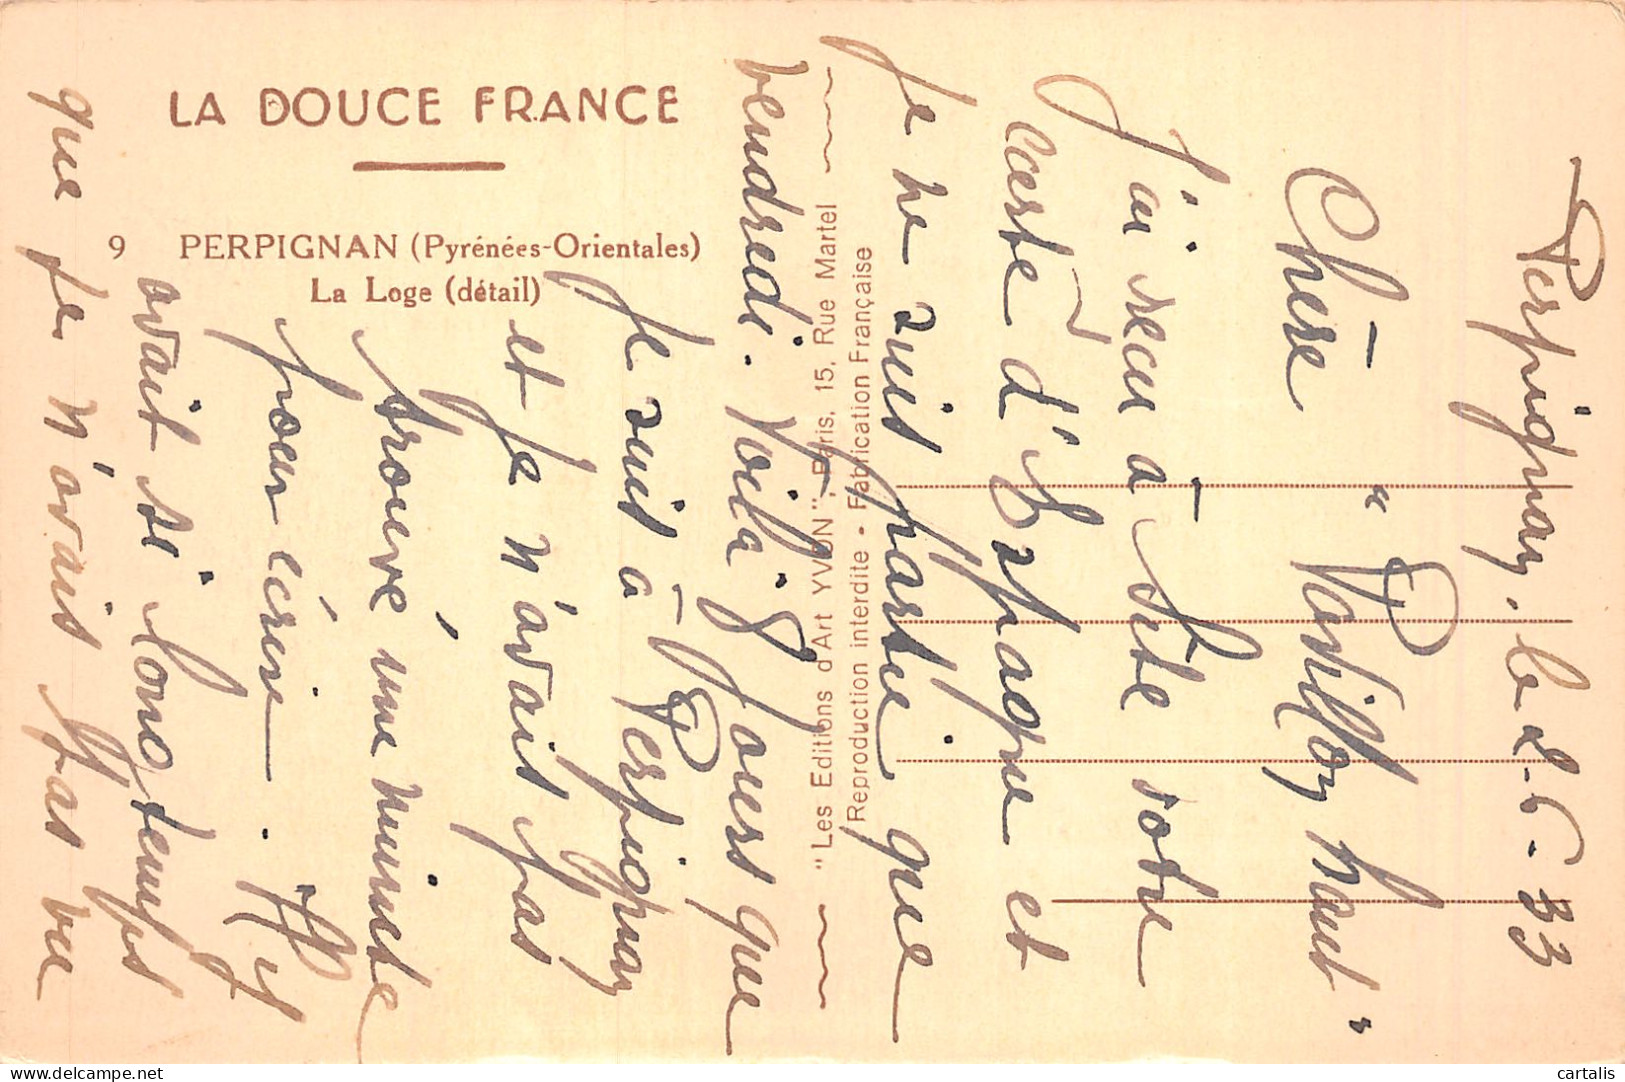 LA DOUCE FRANCE
9 PERPIGNAN (Pyrénées-Orientales)
La Loge (détail)
"Les Editions d'Art YVON", Paris, 15, Rue Martel
Reproduction interdite - Fabrication Française
Perpignan, le 2-6-33
Chère "Pavillon haut"
J'ai recu à Sète votre
carte d'Espagne et
je ne suis partie que
vendredi. Voilà 8 jours que
je suis à Perpignan
et je n'avait pas
trouvé une minute
pour écrire. Il y
avait si longtemps
que je n'avais pas vu
cartalis